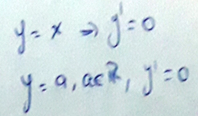 y = x ⇒ y' = 0
y = a, a∈ℝ, y' = 0